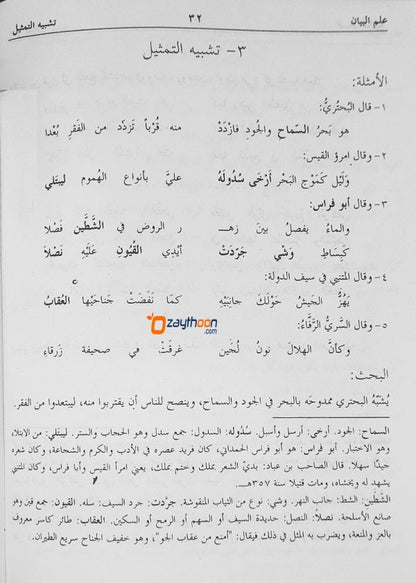 علم البيان ٣٢ تشبيه التمثيل
٣- تشبيه التمثيل
الأمثلة:
١- قال البُحتُريُّ:
هو بَحرُ السّماحِ والجُودِ فازْدَدْ منه قُرْباً تَزدَدْ من الفَقرِ بُعْدا
٢- وقال امرؤ القيس:
وَلَيْلٍ كَمَوْجِ البَحْرِ أَرْخَى سُدُولَهُ عليَّ بأنواعِ الهُمومِ ليبتَلي
٣- وقال أبو فراس:
والماءُ يفصلُ بينَ زهـ ـر الروضِ في الشَّطَّينِ فَصْلا
كَبِساطِ وَشْيٍ جَرّدَتْ أيْدِي القُيُونِ عَلَيْهِ نَصْلاَ
٤- وقال المتنبي في سيف الدولة:
يَهُزُّ الجَيشُ حَوْلَكَ جانِبَيْهِ كمَا نَفَضَتْ جَناحَيْها العُقابُ
zaythoon.com
٥- وقال السريُّ الرَّفَّاءُ:
وكأنَّ الهِلالَ نونُ لُجَينٍ غرِقَتْ في صحيفة زَرقاءِ
البحث:
يُشَبِّهُ البحتري ممدوحَه بالبحر في الجود والسماح، وينصح للناس أن يقتربوا منه، ليبتعدوا من الفقر.
السماح: الجود. أرخى: أرسل وأسبل. سُدُولَه: السدول: جمع سدل وهو الحجاب والستر. ليبتلي: من الابتلاء،
وهو الاختبار. أبو فراس: هو أبو فراس الحمداني، كان فريد عصره في الأدب والكرم والشجاعة، وكان شعره
جيدًا سهلا. قال الصاحب بن عباد: بدئ الشعر بملك وختم بملك، يعني امرأ القيس وأبا فراس، وكان المتنبي
يشهد له ويخشاه، ومات قتيلا سنة ٣٥٧هـ.
الشَّطَّينِ: الشط: جانب النهر. وشي: نوع من الثياب المنقوشة. جرّدت: جرد السيف: سله. القيون: جمع قين وهو
صانع الأسلحة. نصلاً: النصل: حديدة السيف أو السهم أو الرمح أو السكين. العقاب: طائر كاسر معروف
بالعز والمنعة، ويضرب به المثل في ذلك فيقال: "أمنع من عقاب الجو"، وهو خفيف الجناح سريع الطيران.